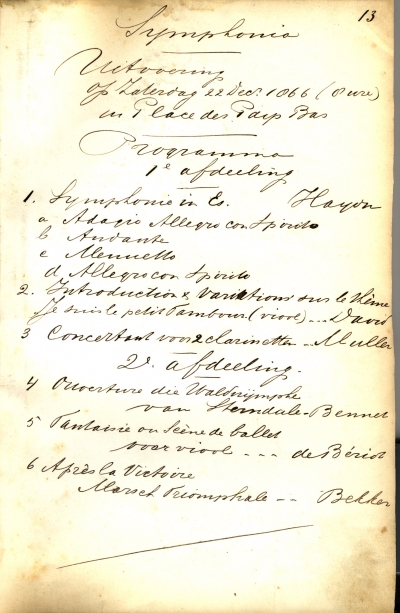 13
Symphonia
Uitvoering
op Zaterdag 22 Dec. 1866 (8 ure)
in Place des Pays Bas
Programma
1e afdeeling
1. Symphonie in Es. Haydn
a Adagio Allegro con Spirito
b Andante
c Menuetto
d Allegro con Spirito
2. Introduction & Variations sur le thême
Je suis le petit Tambour (viool) ... David
3 Concertant voor 2 clarinetten .. Muller
2e afdeeling.
4 Ouverture die Waldnijmphe
van Sterndale-Bennet
5 Fantaisie ou Scène de ballet
voor viool - - - de Bériot
6 Après la Victoire
Marsch Triomphale - - Bekker